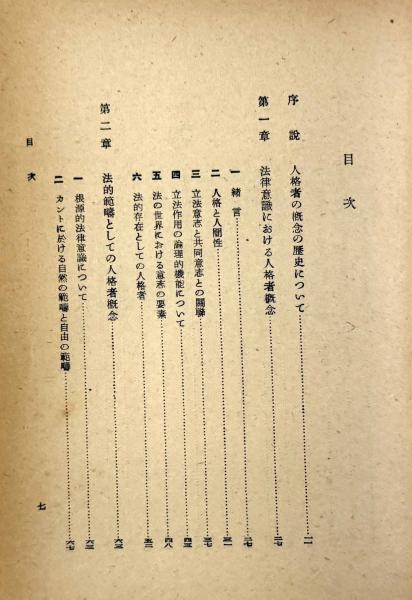 目次
序説　人格者の概念の歴史について……一一
第一章　法律意識における人格者概念……二七
一　緒言……二七
二　人格と人間性……三一
三　立法意志と共同意志との關聯……三七
四　立法作用の論理的機能について……四三
五　法の世界における意志の要素……四八
六　法的存在としての人格者……五三
第二章　法的範疇としての人格者概念……六三
一　根源的法律意識について……六三
二　カントに於ける自然の範疇と自由の範疇……六七
目次
七